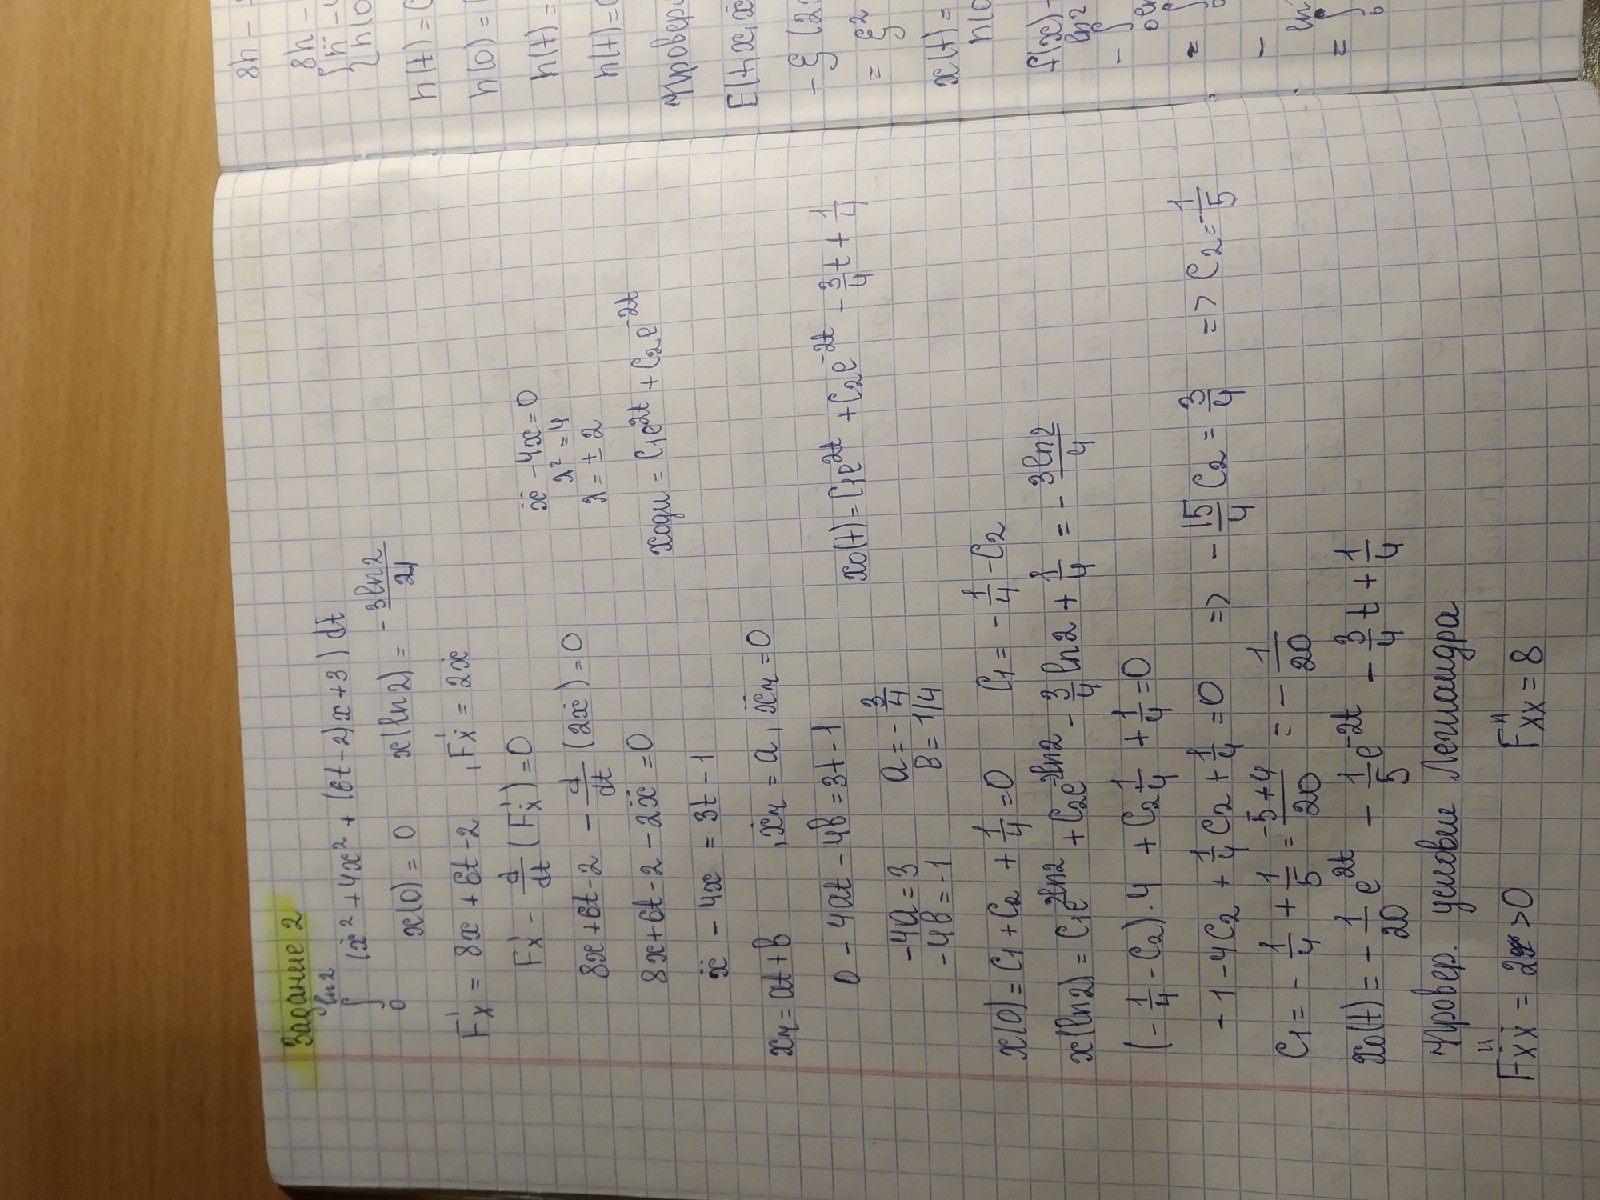 Задание 2
∫₀^{ln2} (ẋ² + 4x² + (6t-2)x + 3) dt
x(0) = 0 x(ln2) = -3ln2/4
F'x = 8x + 6t - 2 , F'ẋ = 2ẋ
F'x - d/dt (F'ẋ) = 0
8x + 6t - 2 - d/dt (2ẋ) = 0
8x + 6t - 2 - 2ẍ = 0
ẍ - 4x = 3t - 1
ẍ - 4x = 0
λ² = 4
λ = ± 2
xоди = C₁e^{2t} + C₂e^{-2t}
xч = at + b , ẋч = a , ẍч = 0
0 - 4at - 4b = 3t - 1
-4a = 3 a = -3/4
-4b = -1 b = 1/4
x₀(t) = C₁e^{2t} + C₂e^{-2t} - 3/4 t + 1/4
x(0) = C₁ + C₂ + 1/4 = 0 C₁ = -1/4 - C₂
x(ln2) = C₁e^{2ln2} + C₂e^{-2ln2} - 3/4 ln2 + 1/4 = -3ln2/4
(-1/4 - C₂)·4 + C₂ 1/4 + 1/4 = 0
-1 - 4C₂ + 1/4 C₂ + 1/4 = 0 => -15/4 C₂ = 3/4 => C₂ = -1/5
C₁ = -1/4 + 1/5 = (-5+4)/20 = -1/20
x₀(t) = -1/20 e^{2t} - 1/5 e^{-2t} - 3/4 t + 1/4
Провер. условие Лежандра
F''ẋẋ = 2 > 0 F''xx = 8
8h -
8h -
h(t) =
h(0) =
h(t) =
h(t) =
Провер
E(t, x, ẋ
- ξ (2
= ξ²
x(t) =
f(x) -